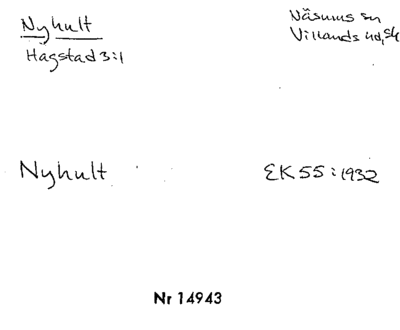 Nyhult
Hagstad 3:1
Näsums sn
Villands hd, Sk
Nyhult
EK 55:1932
Nr 14943